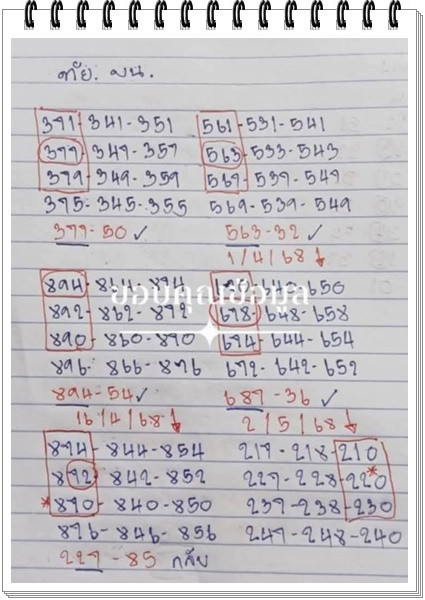 บน.
371-341-351 561-531-541
377-347-357 563-533-543
379-349-359 567-537-547
375-345-355 569-539-549
377-50 ✓ 563-32 ✓
1/4/68 ↓
894-864-874 670-640-650
ขอบคุณข้อมูล
892-862-872 678-648-658
890-860-870 674-644-654
896-866-876 672-642-652
894-54 ✓ 687-36 ✓
16/4/68 ↓ 2/5/68 ↓
874-844-854 217-218-210
872-842-852 227-228-220*
*870-840-850 237-238-230
876-846-856 247-248-240
227-85 กลับ